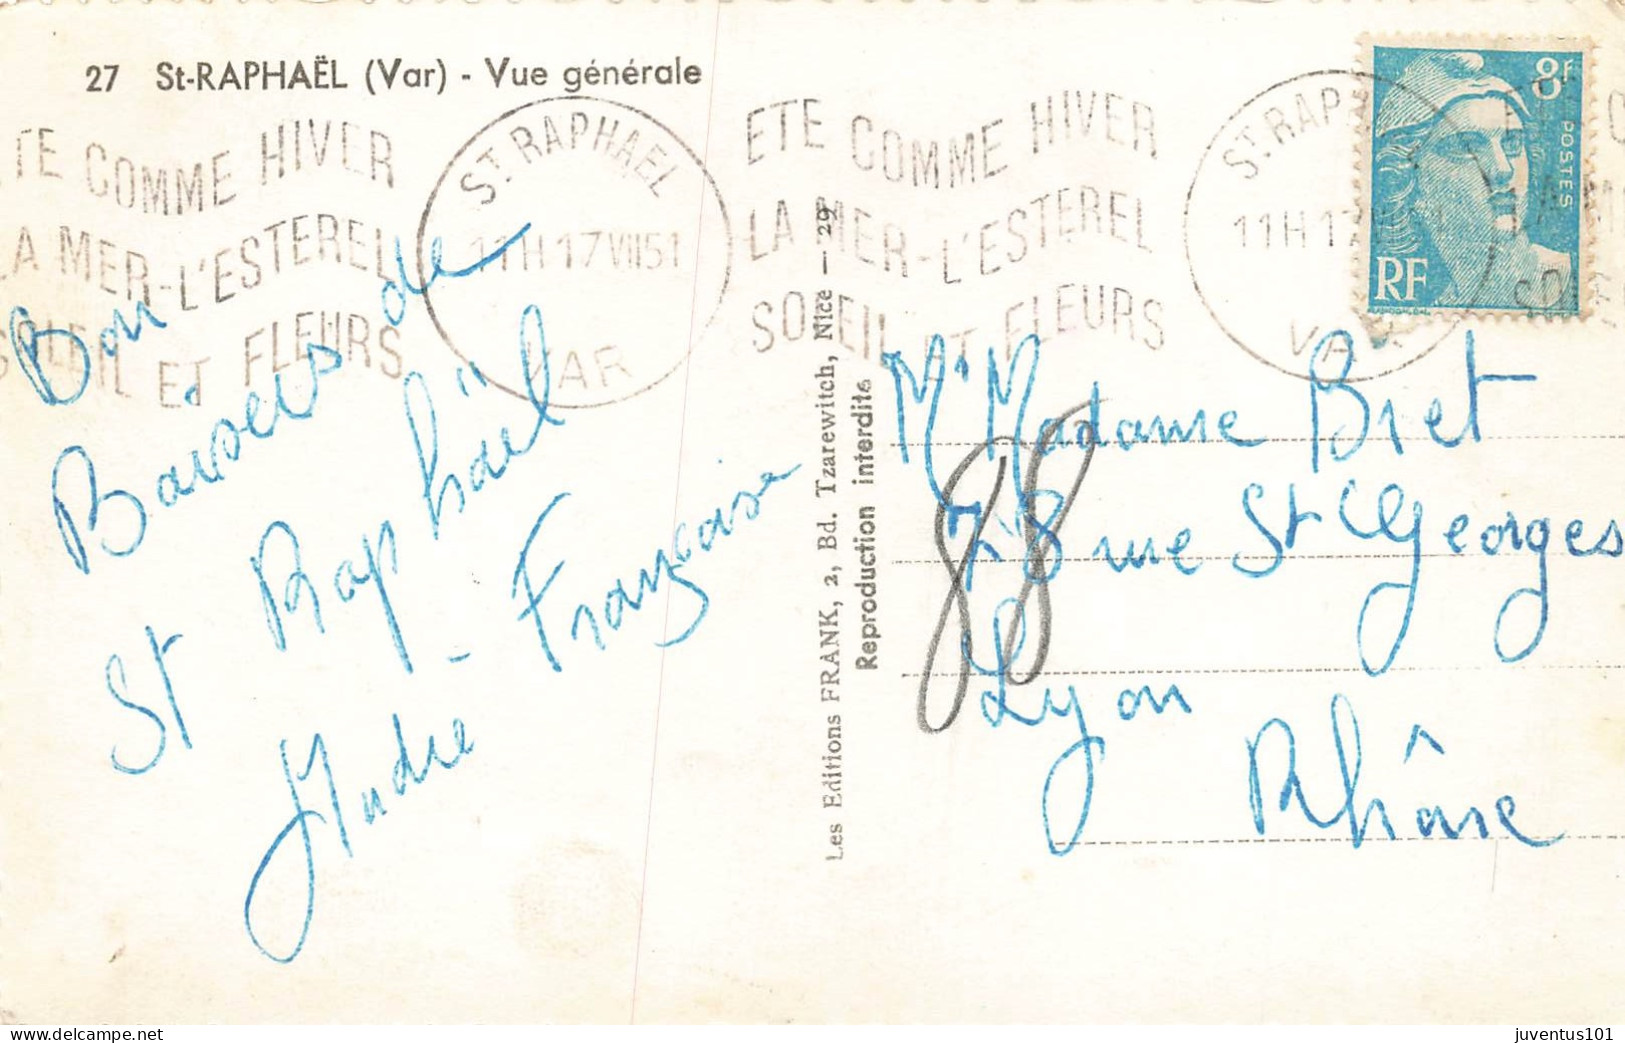 27 St-RAPHAËL (Var) - Vue générale
ETE COMME HIVER
LA MER-L'ESTEREL
SOLEIL ET FLEURS
ST. RAPHAEL
11H 17 VII 51
VAR
ETE COMME HIVER
LA MER-L'ESTEREL
SOLEIL ET FLEURS
ST. RAPH
11H 17
VAR
8F
POSTES
RF
Bon
Baisers de
St Raphaël
André - Françoise
Les Editions FRANK, 2, Bd. Tzarewitch, Nice — 29
Reproduction interdite
Mr Madame Bret
78 rue St Georges
88
Lyon
Rhône
juventus101